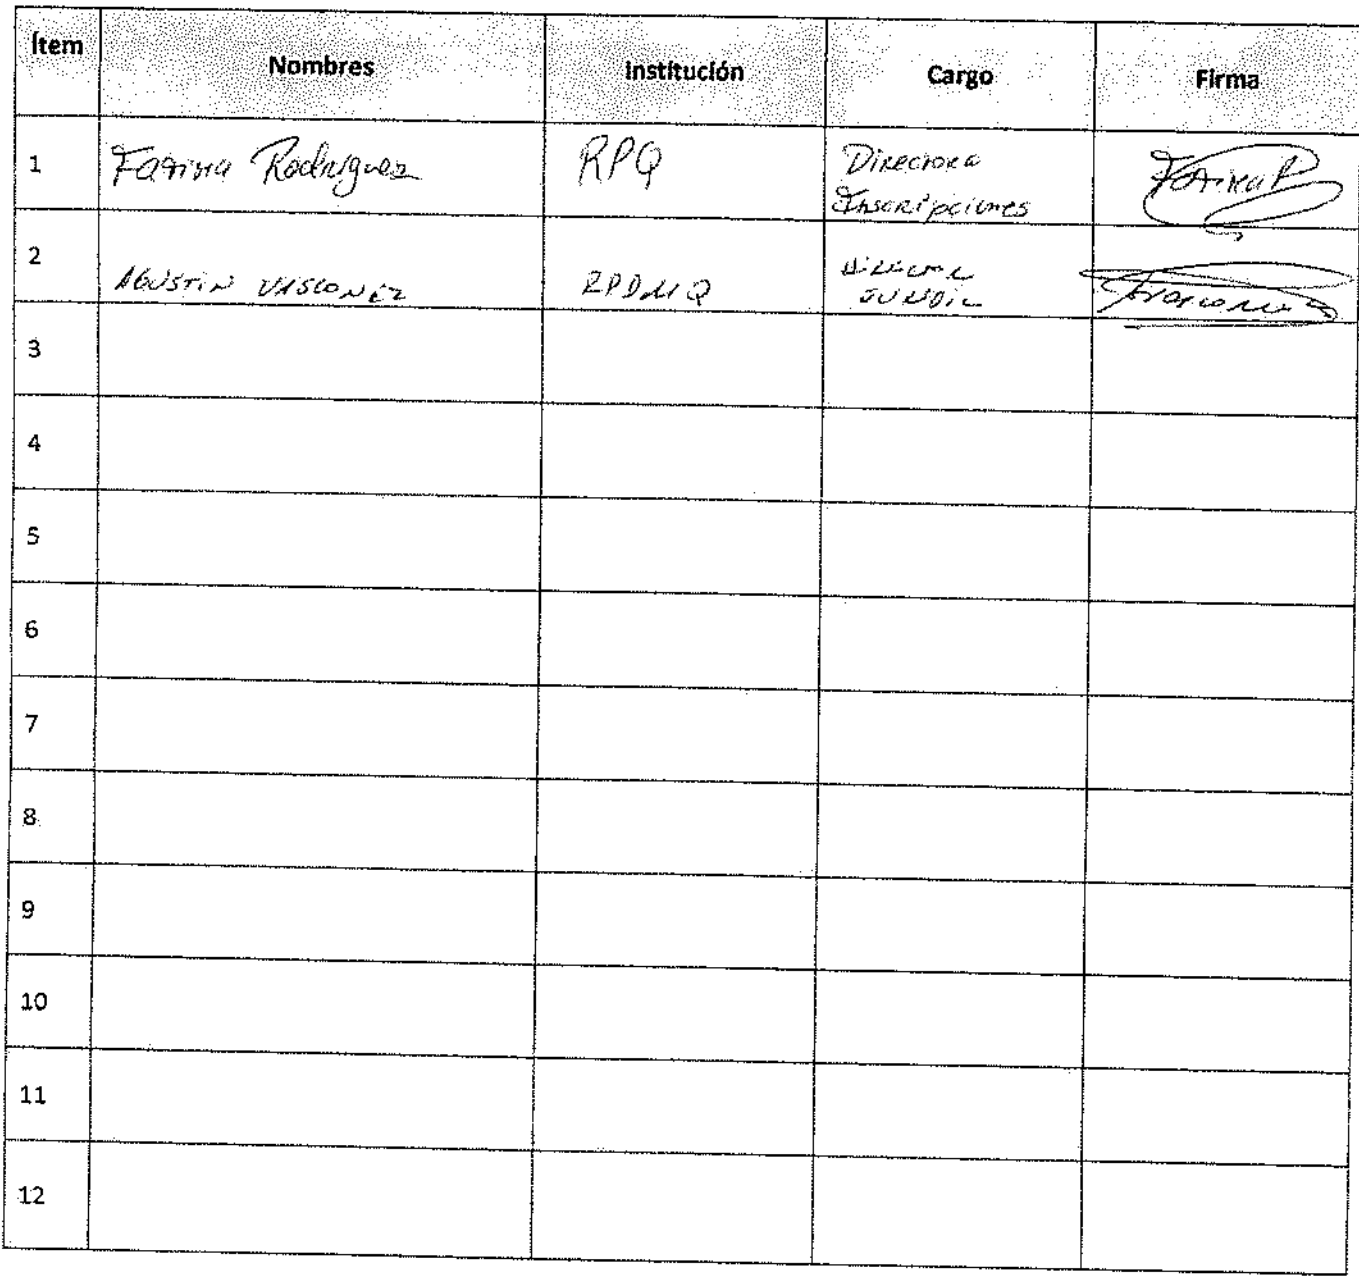 Ítem Nombres Institución Cargo Firma
1 Fatima Rodriguez RPQ Directora
Inscripciones
2 AGUSTIN VASCONEZ RPDMQ
3
4
5
6
7
8
9
10
11
12